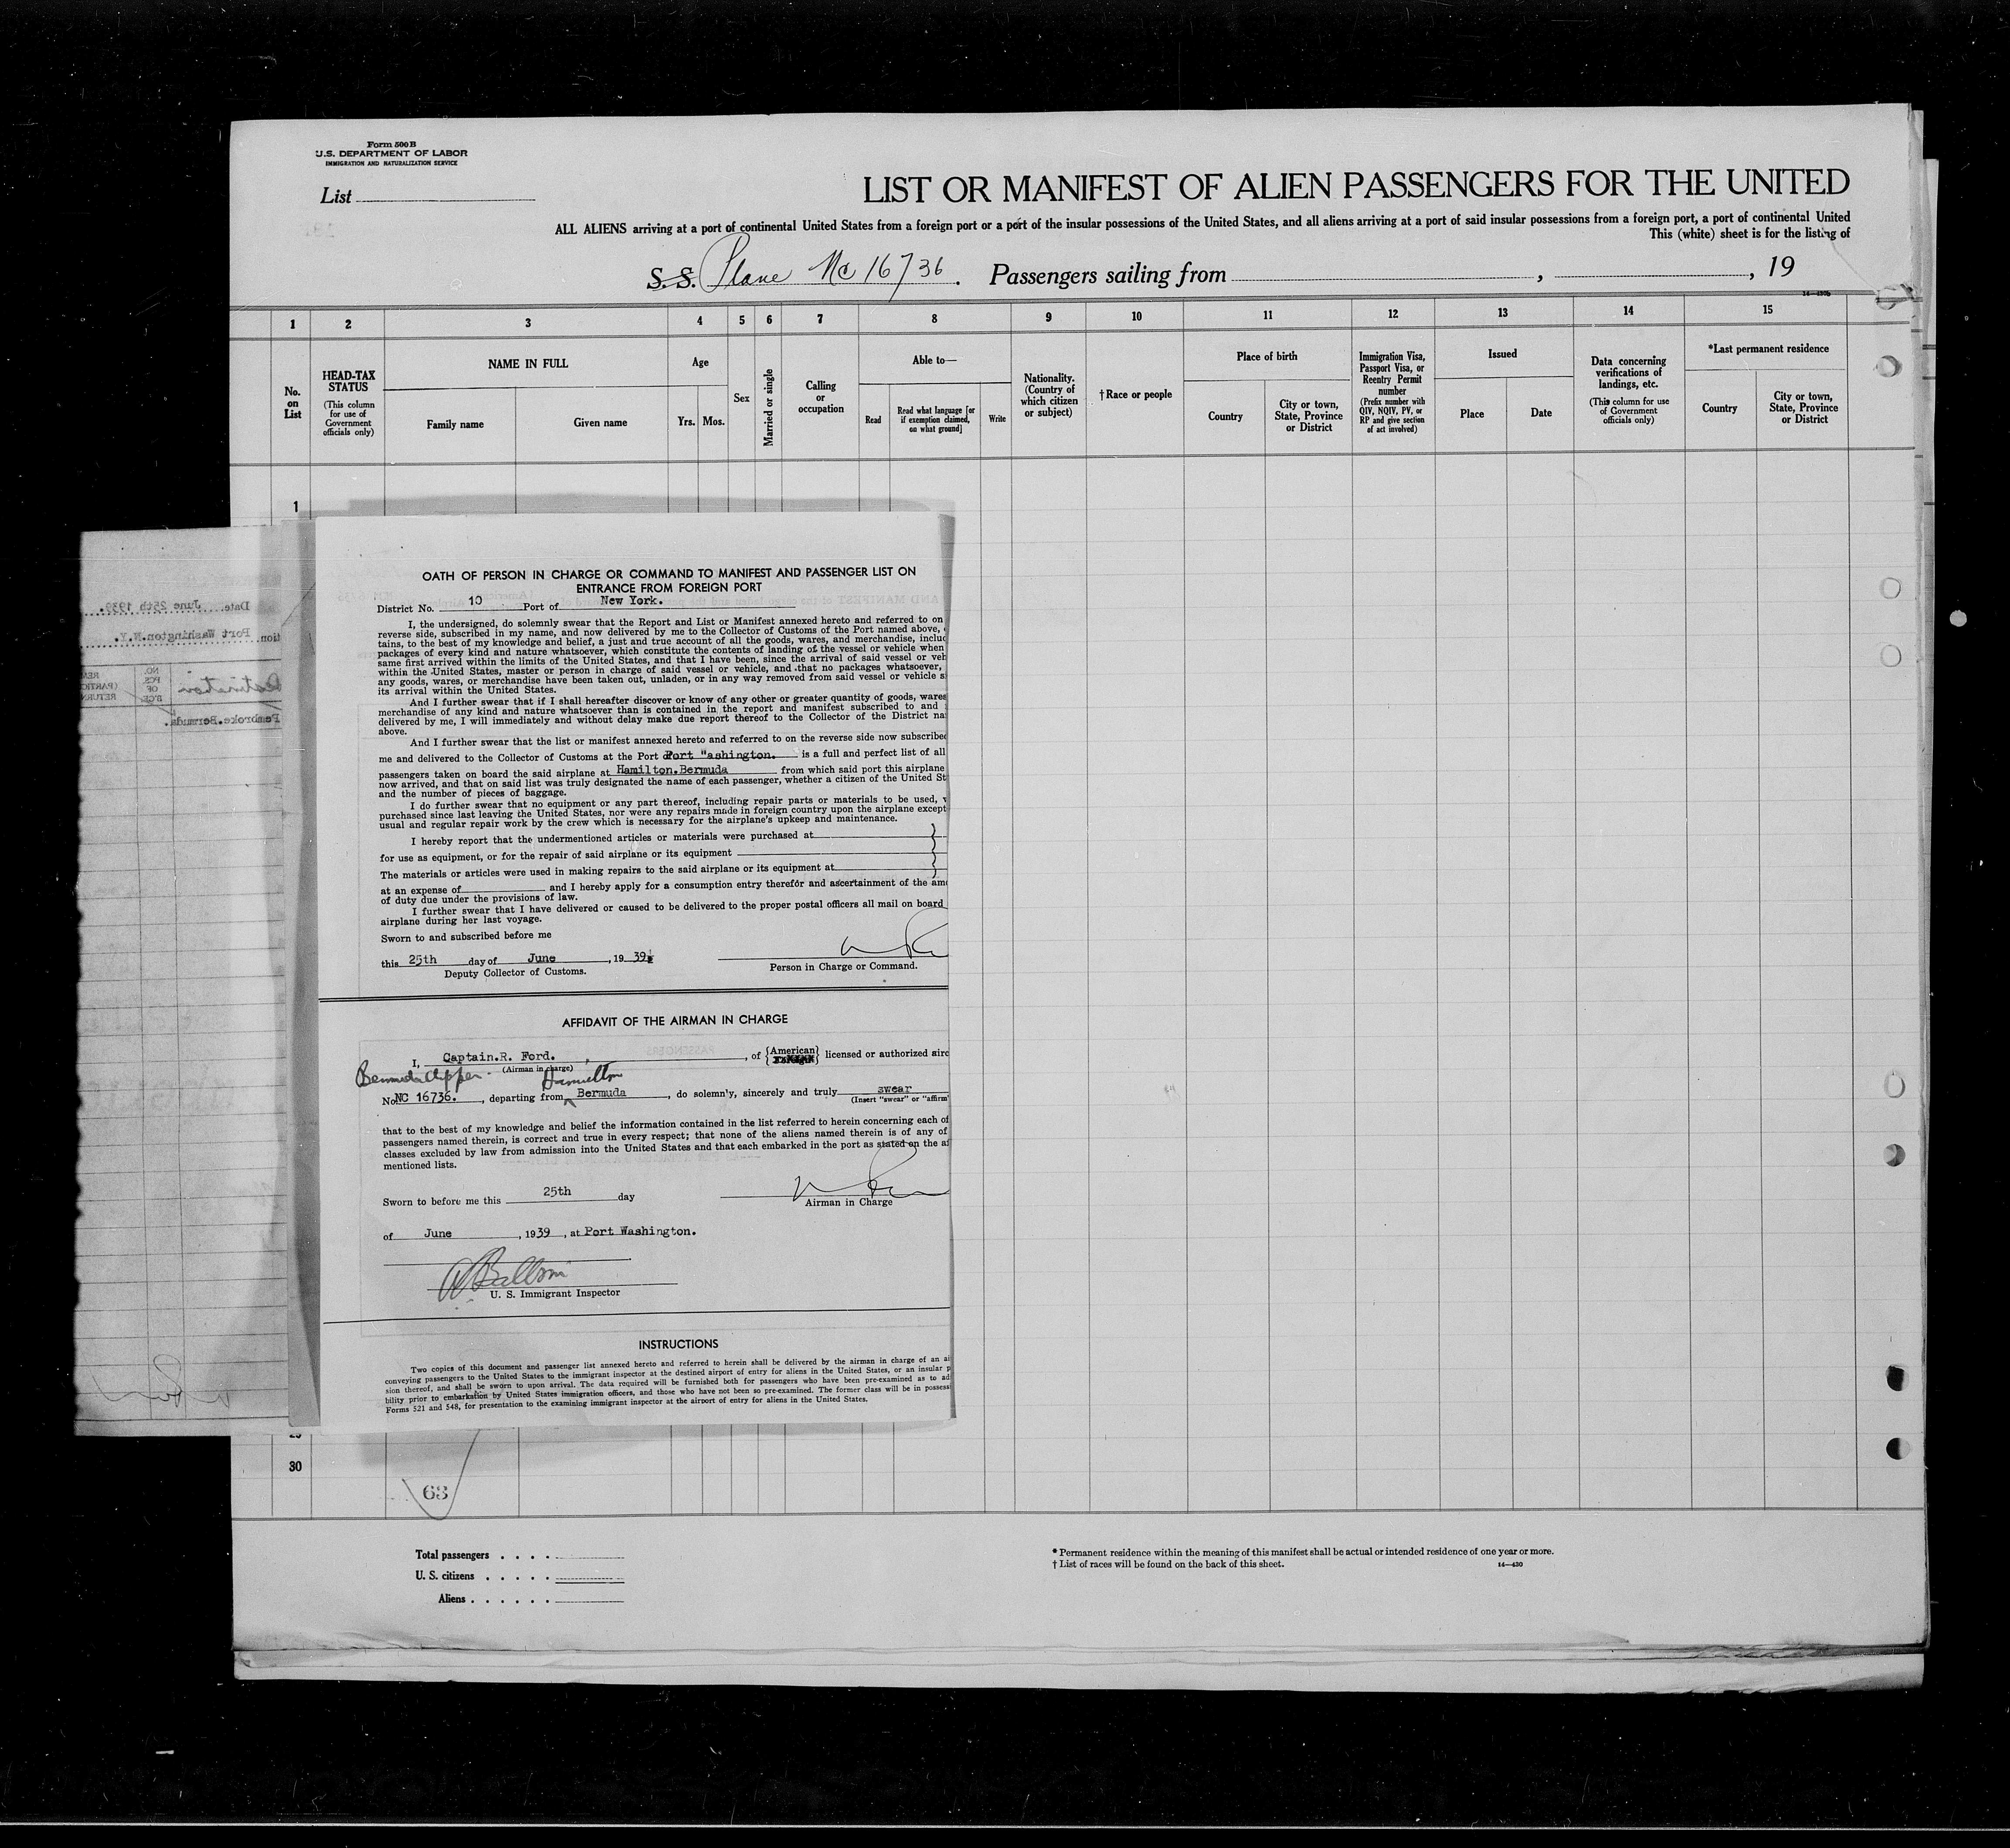 Form 500B
U.S. DEPARTMENT OF LABOR
IMMIGRATION AND NATURALIZATION SERVICE
List
LIST OR MANIFEST OF ALIEN PASSENGERS FOR THE UNITED
ALL ALIENS arriving at a port of continental United States from a foreign port or a port of the insular possessions of the United States, and all aliens arriving at a port of said insular possessions from a foreign port, a port of continental United
This (white) sheet is for the listing of
S. S. Plane Nc 16736. Passengers sailing from , , 19
14—430b
1 2 3 4 5 6 7 8 9 10 11 12 13 14 15
No. on List
HEAD-TAX STATUS
(This column for use of Government officials only)
NAME IN FULL
Family name
Given name
Age
Yrs. Mos.
Sex
Married or single
Calling or occupation
Able to—
Read
Read what language [or if exemption claimed, on what ground]
Write
Nationality. (Country of which citizen or subject)
†Race or people
Place of birth
Country
City or town, State, Province or District
Immigration Visa, Passport Visa, or Reentry Permit number
(Prefix number with QIV, NQIV, PV, or RP and give section of act involved)
Issued
Place
Date
Data concerning verifications of landings, etc.
(This column for use of Government officials only)
*Last permanent residence
Country
City or town, State, Province or District
1
Date June 25th 1939.
Port Washington.N.Y.
NO. PCS. OF B'GE
Destination
Pembroke.Bermuda.
OATH OF PERSON IN CHARGE OR COMMAND TO MANIFEST AND PASSENGER LIST ON
ENTRANCE FROM FOREIGN PORT
District No. 10 Port of New York.
I, the undersigned, do solemnly swear that the Report and List or Manifest annexed hereto and referred to on
reverse side, subscribed in my name, and now delivered by me to the Collector of Customs of the Port named above,
tains, to the best of my knowledge and belief, a just and true account of all the goods, wares, and merchandise, includ
packages of every kind and nature whatsoever, which constitute the contents of landing of the vessel or vehicle when
same first arrived within the limits of the United States, and that I have been, since the arrival of said vessel or veh
within the United States, master or person in charge of said vessel or vehicle, and that no packages whatsoever,
any goods, wares, or merchandise have been taken out, unladen, or in any way removed from said vessel or vehicle s
its arrival within the United States.
And I further swear that if I shall hereafter discover or know of any other or greater quantity of goods, wares
merchandise of any kind and nature whatsoever than is contained in the report and manifest subscribed to and
delivered by me, I will immediately and without delay make due report thereof to the Collector of the District na
above.
And I further swear that the list or manifest annexed hereto and referred to on the reverse side now subscribed
me and delivered to the Collector of Customs at the Port of Port "ashington. is a full and perfect list of all
passengers taken on board the said airplane at Hamilton.Bermuda from which said port this airplane
now arrived, and that on said list was truly designated the name of each passenger, whether a citizen of the United St
and the number of pieces of baggage.
I do further swear that no equipment or any part thereof, including repair parts or materials to be used, w
purchased since last leaving the United States, nor were any repairs made in foreign country upon the airplane except
usual and regular repair work by the crew which is necessary for the airplane's upkeep and maintenance.
I hereby report that the undermentioned articles or materials were purchased at
for use as equipment, or for the repair of said airplane or its equipment
The materials or articles were used in making repairs to the said airplane or its equipment at
at an expense of and I hereby apply for a consumption entry therefor and ascertainment of the amo
of duty due under the provisions of law.
I further swear that I have delivered or caused to be delivered to the proper postal officers all mail on board
airplane during her last voyage.
Sworn to and subscribed before me
this 25th day of June , 19 39
Deputy Collector of Customs.
Person in Charge or Command.
AFFIDAVIT OF THE AIRMAN IN CHARGE
I, Captain.R. Ford. , of {American Foreign} licensed or authorized airc
(Airman in charge)
Bermuda Clipper. Hamilton
No. NC 16736. , departing from Bermuda , do solemn'y, sincerely and truly swear
(Insert "swear" or "affirm"
that to the best of my knowledge and belief the information contained in the list referred to herein concerning each of
passengers named therein, is correct and true in every respect; that none of the aliens named therein is of any of
classes excluded by law from admission into the United States and that each embarked in the port as stated on the af
mentioned lists.
Sworn to before me this 25th day
Airman in Charge
of June , 1939 , at Port Washington.
U. S. Immigrant Inspector
INSTRUCTIONS
Two copies of this document and passenger list annexed hereto and referred to herein shall be delivered by the airman in charge of an ai
conveying passengers to the United States to the immigrant inspector at the destined airport of entry for aliens in the United States, or an insular p
sion thereof, and shall be sworn to upon arrival. The data required will be furnished both for passengers who have been pre-examined as to ad
bility prior to embarkation by United States immigration officers, and those who have not been so pre-examined. The former class will be in possess
Forms 521 and 548, for presentation to the examining immigrant inspector at the airport of entry for aliens in the United States.
30
63
Total passengers . . . .
U. S. citizens . . . . .
Aliens . . . . . .
* Permanent residence within the meaning of this manifest shall be actual or intended residence of one year or more.
† List of races will be found on the back of this sheet.
14—430